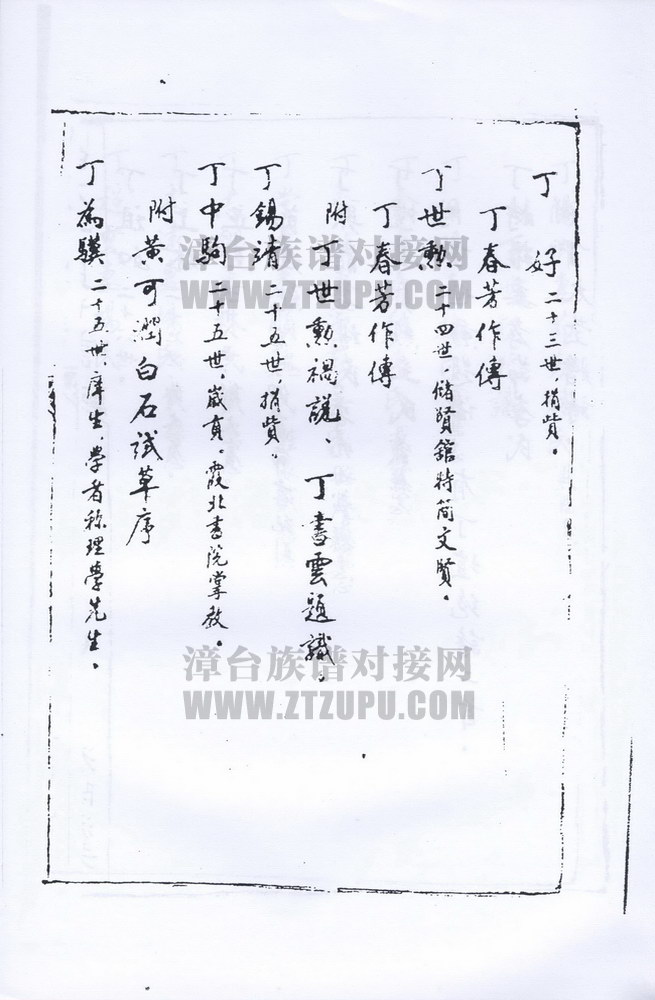 丁　好 二十三世，捐貲。
丁春芳作傳
丁世勲 二十四世，儲賢舘特簡文賢。
丁春芳作傳
附丁世勲禍説、丁書雲題識。
丁錫靖 二十五世，捐貲。
丁中駒 二十五世，嵗貢。霞北書院掌教。
附黃可潤白石試草序
丁為驥 二十五世，庠生，學者称理學先生。
漳台族谱对接网
WWW.ZTZUPU.COM
漳台族谱对接网
WWW.ZTZUPU.COM